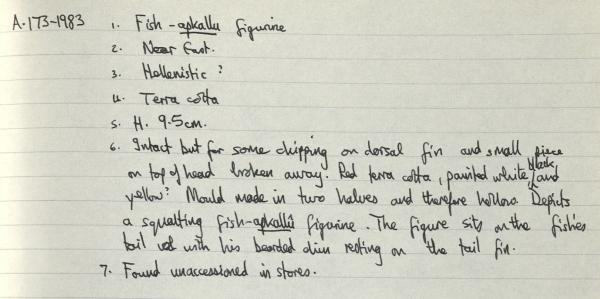 A.173-1983 1. Fish-apkallu figurine
2. Near East.
3. Hellenistic?
4. Terra cotta
5. H. 9.5cm.
6. Intact but for some chipping on dorsal fin and small piece
on top of head broken away. Red terra cotta, painted white, black, and
yellow? Mould made in two halves and therefore hollow. Depicts
a squatting fish-apkallu figurine. The figure sits on the fish's
tail with his bearded chin resting on the tail fin.
7. Found unaccessioned in stores.